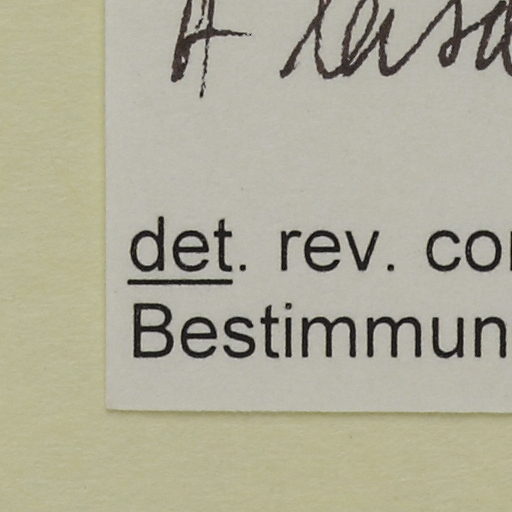 A
det. rev. co
Bestimmun